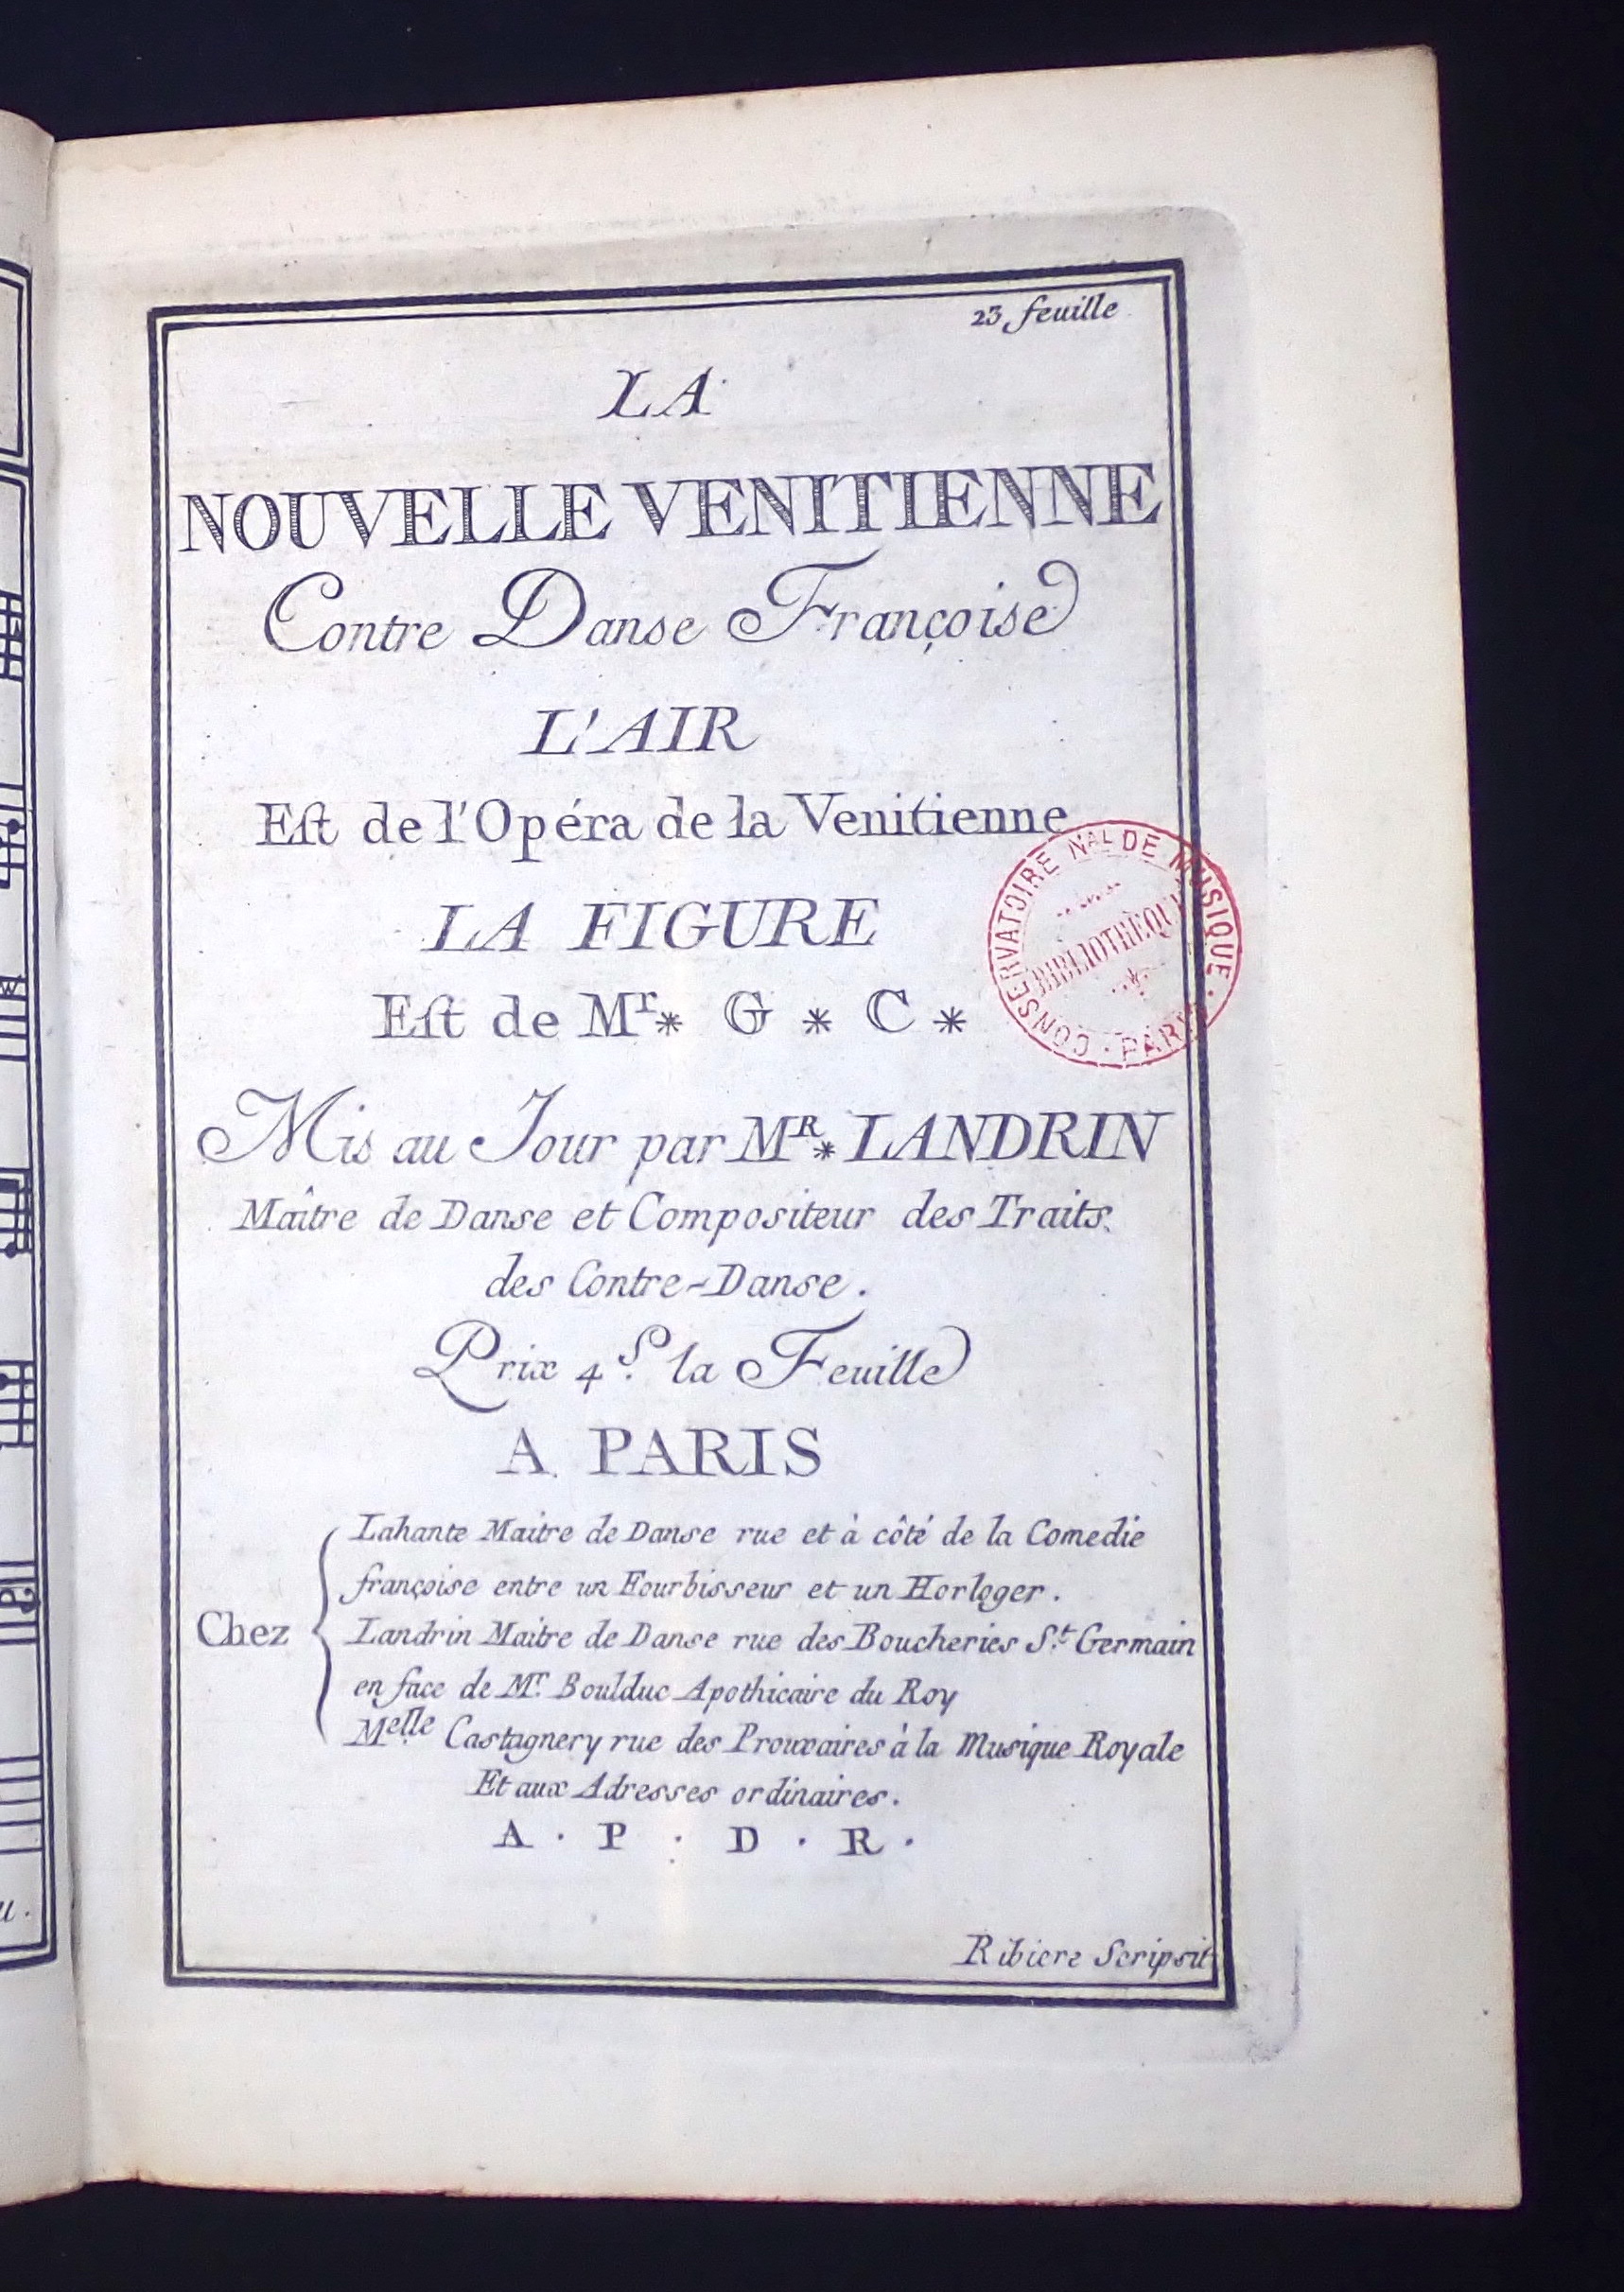 23 feuille
LA
NOUVELLE VENITIENNE
Contre Danse Françoise
L'AIR
Est de l'Opéra de la Venitienne
LA FIGURE
Est de Mr * G * C *
Mis au Jour par MR * LANDRIN
Maître de Danse et Compositeur des Traits
des Contre-Danse.
Prix 4 S. la Feuille
A PARIS
Chez
Lahante Maitre de Danse rue et à côté de la Comedie
françoise entre un Fourbisseur et un Horloger.
Landrin Maitre de Danse rue des Boucheries St. Germain
en face de Mr. Boulduc Apothicaire du Roy
Melle Castagnery rue des Prouvaires à la Musique Royale
Et aux Adresses ordinaires.
A. P. D. R.
Ribiere Scripsit
CONSERVATOIRE NAL DE MUSIQUE. PARIS.
BIBLIOTHÈQUE
u.